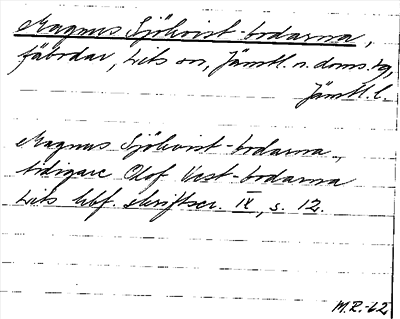 Magnus Sjökvist-bodarna,
fäbodar, Lits sn, Jämtl. n. doms. tg,
Jämtl. l.
Magnus Sjökvist-bodarna,
tidigare Olof Vast-bodarna
Lits hbf. skriftser. IX, s. 12.
M.R.-62